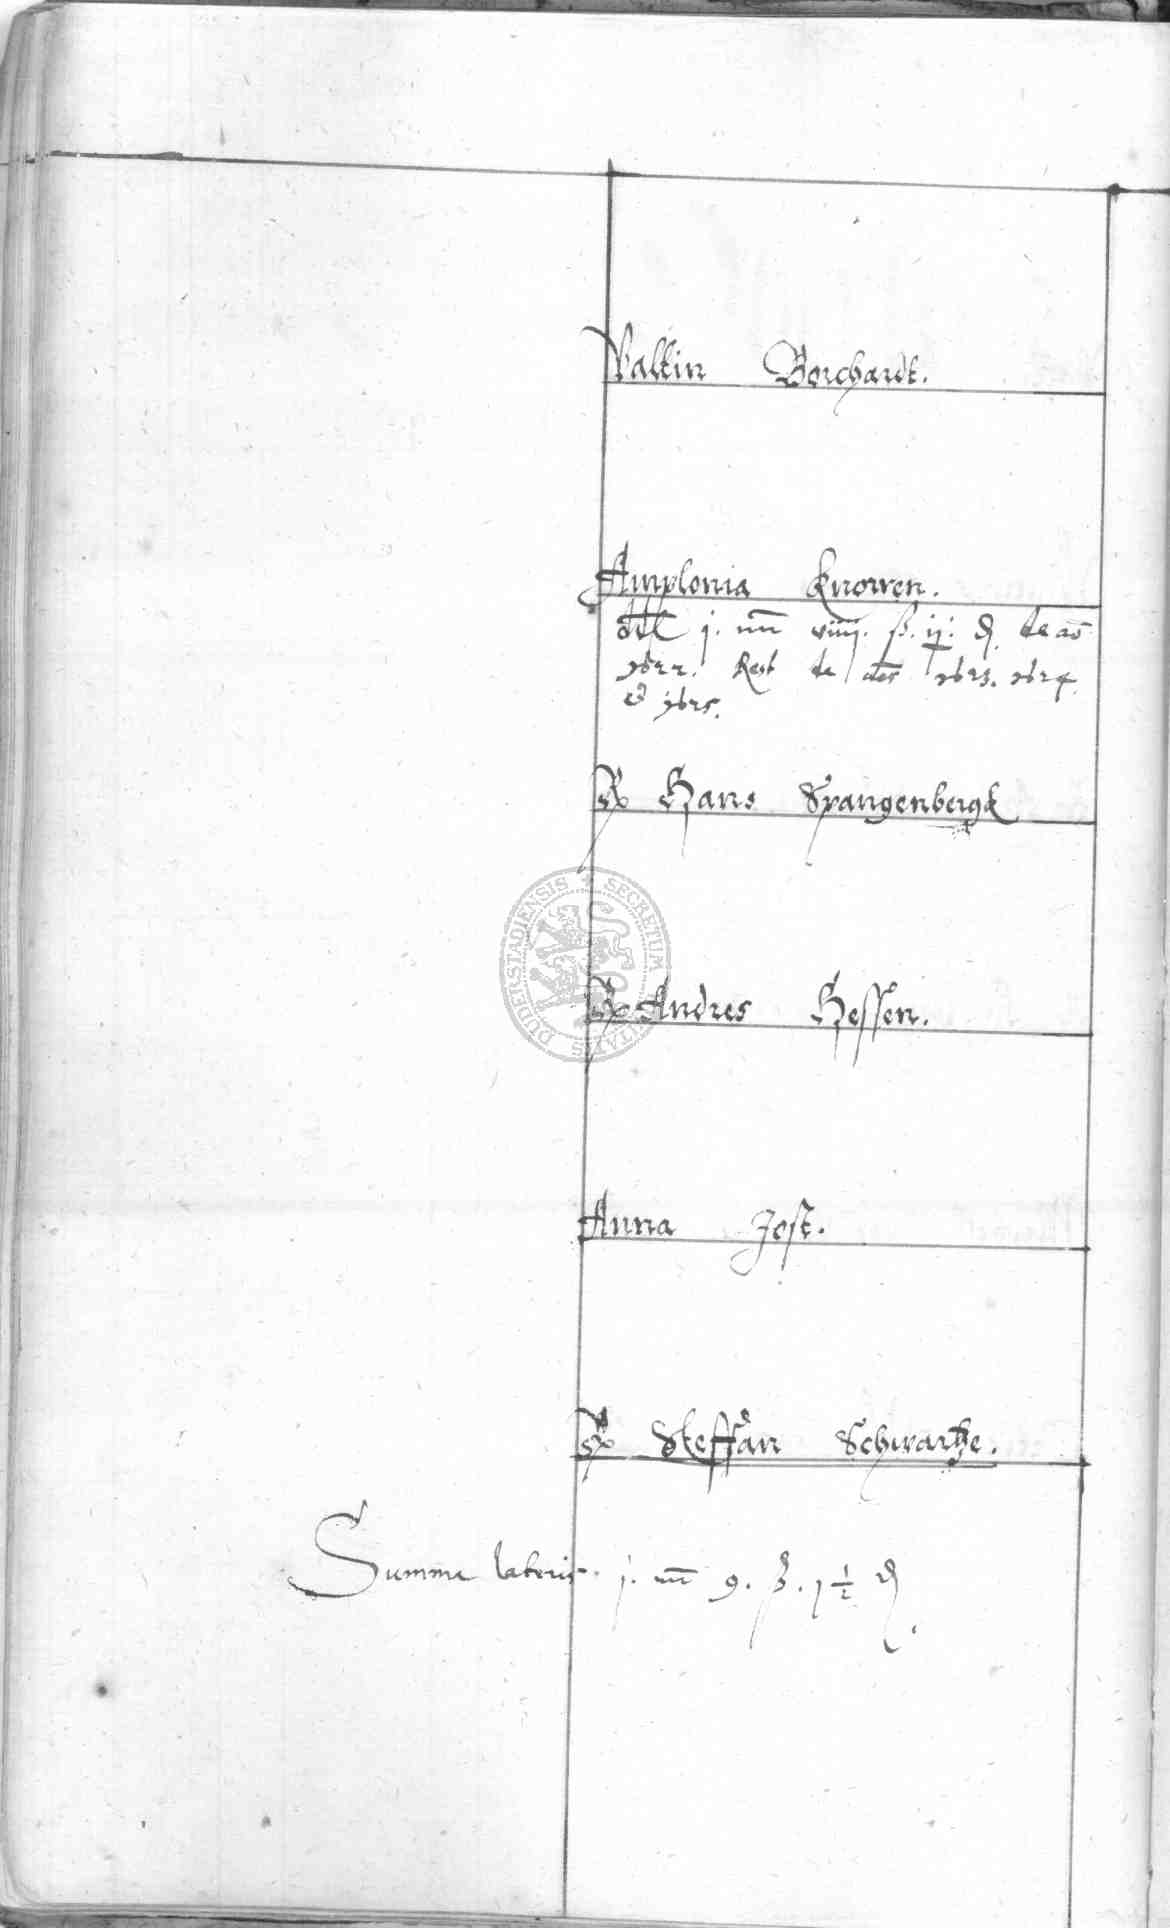 Valtin Borchardt.
Amplonia Knorren.
dt j. mr viiij. ß. ij. ₰ de ao
1622. Rest de ães 1623. 1624.
et 1625.
Hans Spangenbergk
Andres Hessen.
Anna Jost.
Steffan Schwartze.
Summa lateris. j. mr 9. ß. 1 1/2 ₰.
SECRETUM DUDERSTADIENSIS